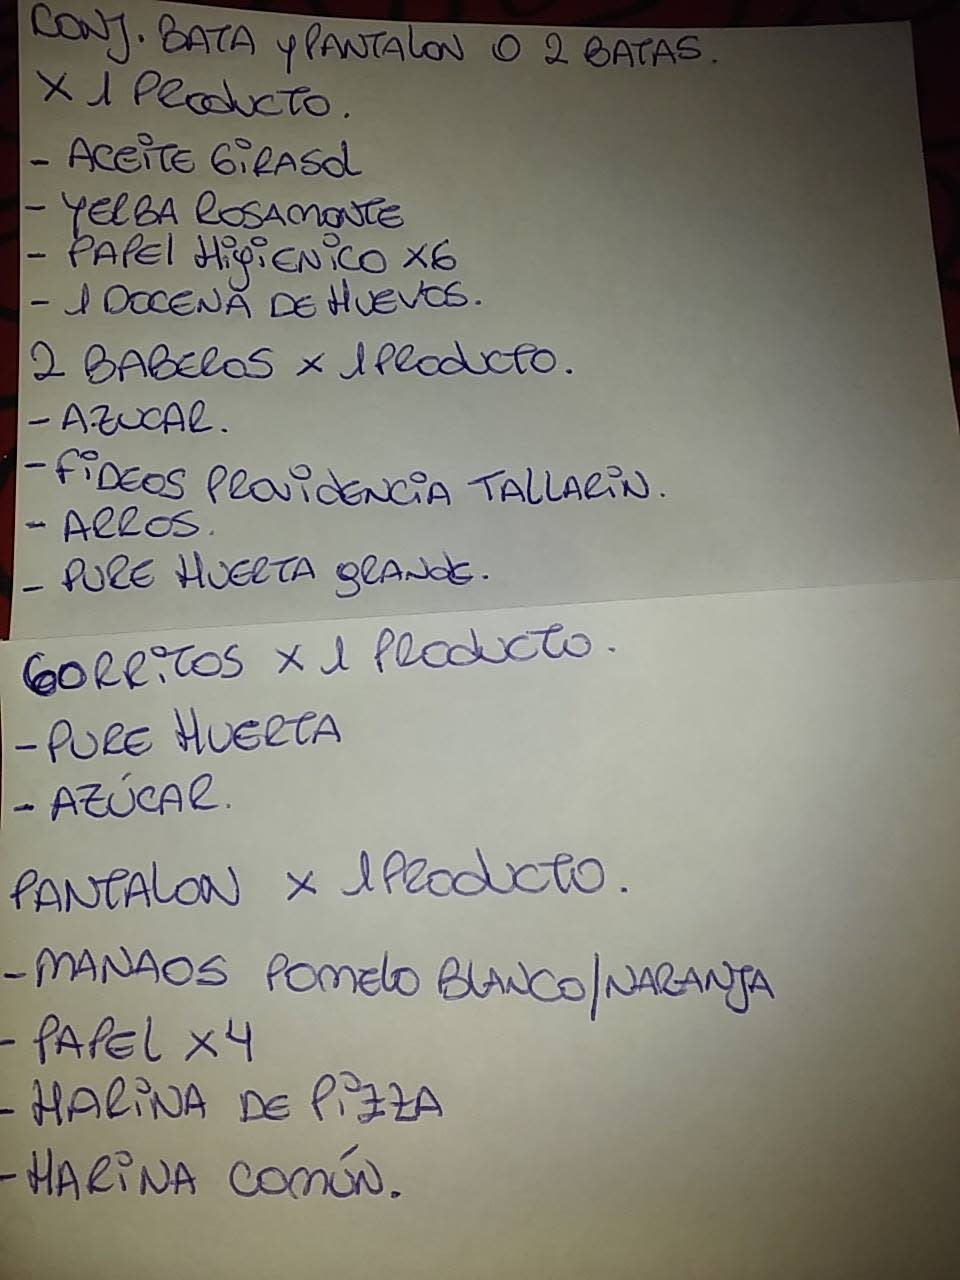 CONJ. BATA y PANTALON O 2 BATAS.
X 1 PRODUCTO.
- ACEITE GIRASOL
- YERBA ROSAMONTE
- PAPEL HIGIENICO X6
- 1 DOCENA DE HUEVOS.
2 BABEROS X 1 PRODUCTO.
- AZUCAR.
- FIDEOS PROVIDENCIA TALLARIN.
- ARROS.
- PURE HUERTA GRANDE.
GORRITOS X 1 PRODUCTO.
- PURE HUERTA
- AZÚCAR.
PANTALON X 1 PRODUCTO.
- MANAOS POMELO BLANCO/NARANJA
- PAPEL X4
- HARINA DE PIZZA
- HARINA COMÚN.